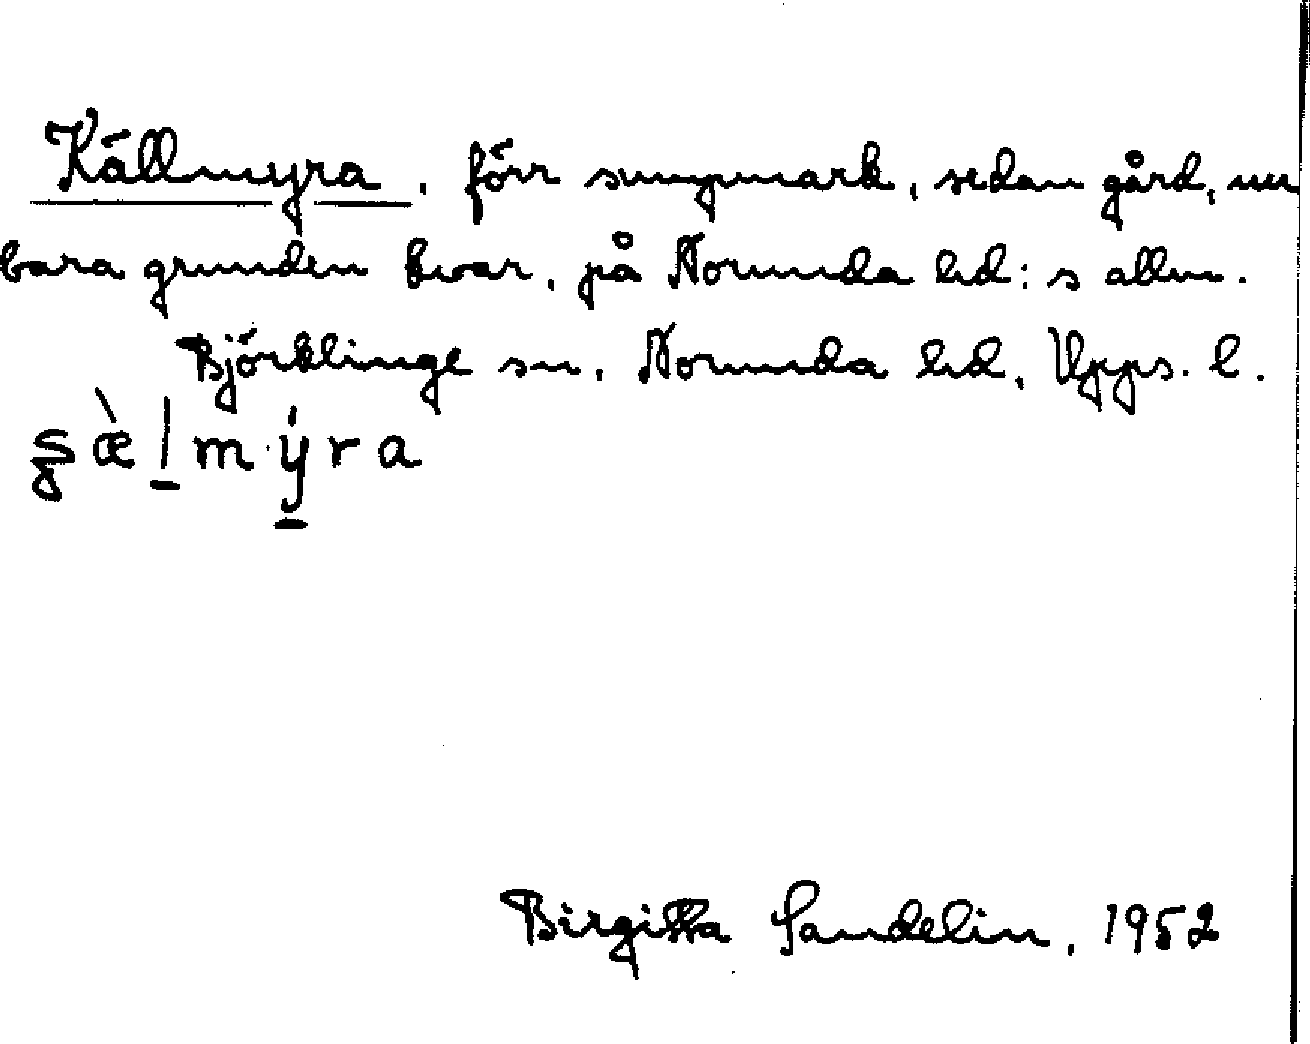 Källmyra, förr sumpmark, sedan gård, nu
bara grunden kvar, på Norunda hd:s allm.
Björklinge sn, Norunda hd, Upps. l.
Birgitta Sandelin, 1952